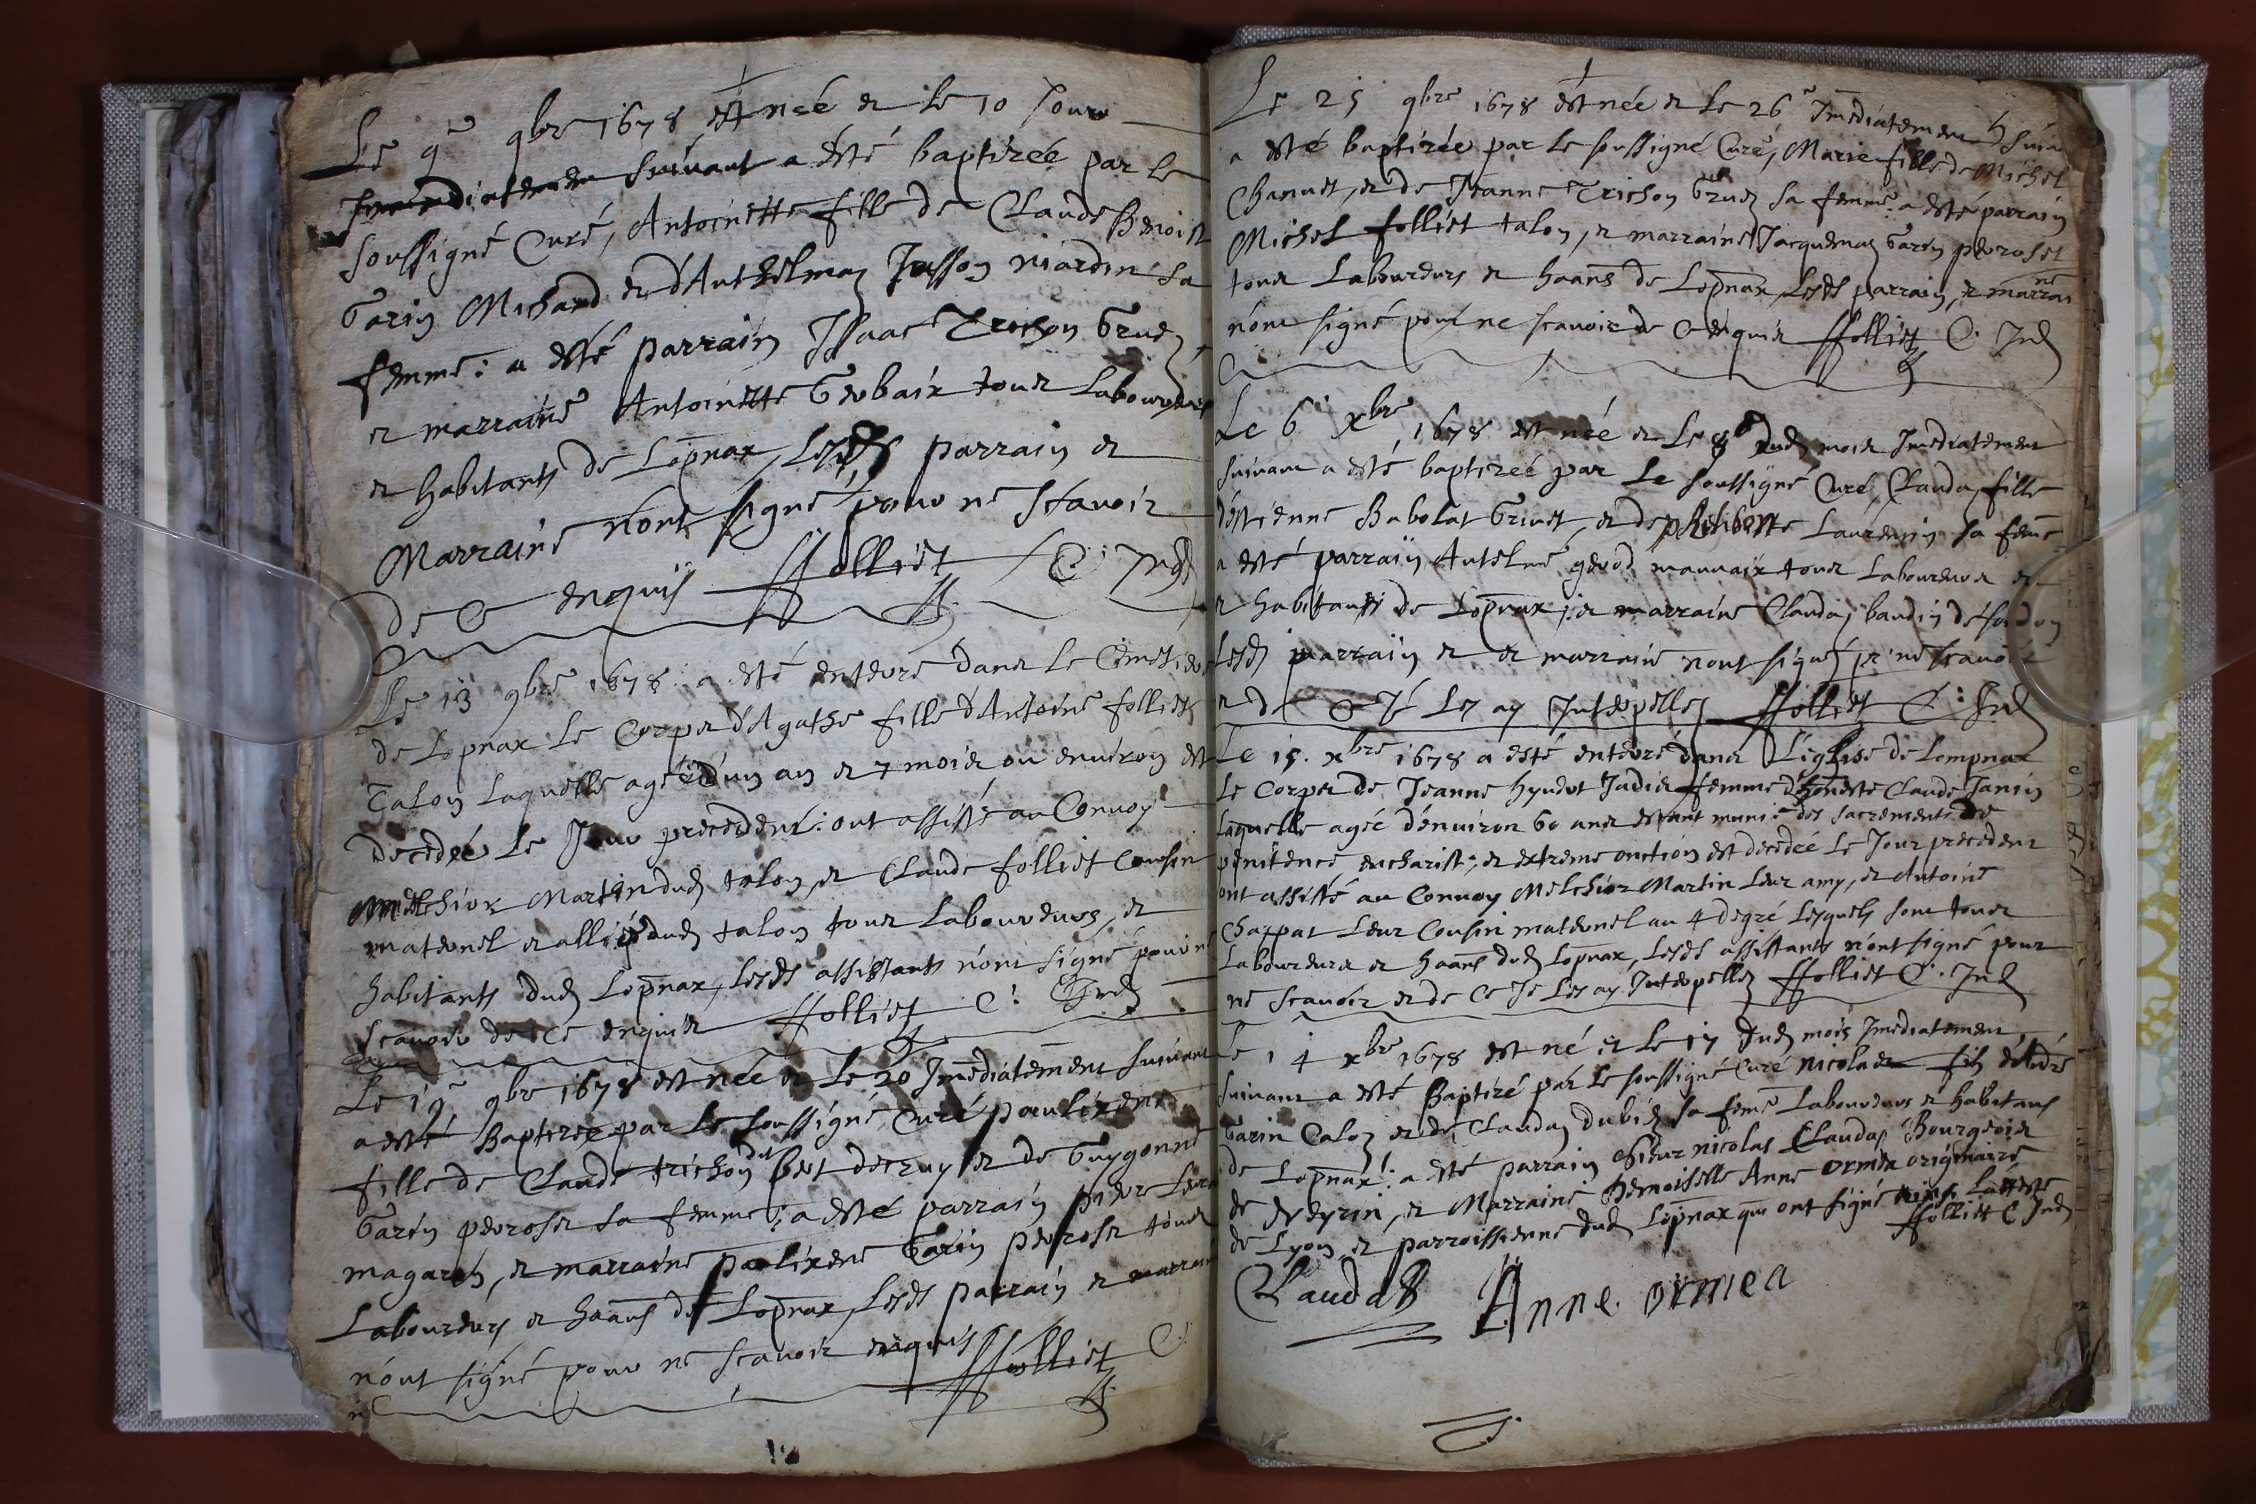 Le 9e 9bre 1678 est née et le 10 Jour
Immediatement suivant a esté baptizée par le
soussigné Curé, Antoinette fille de Claude Benoist
Garin Michard et d'Anthelmaz Jasson niardin sa
femme: a esté parrain Isaac Trichon Gruaz
et marraine Antoinette Gerbaix tous Laboureurs
et habitants de Lopnax, Lesds parrain et
Marraine n'ont signé pour ne scavoir
de ce enquis ffolliet C. Ind
Le 13 9bre 1678: a esté enterré dans le Cimetiere
de Lopnax le Corps d'Agathe fille d'Antoine folliet
Talon laquelle agée d'un an et 7 mois ou environ est
decedée le Jour precedent: ont assisté au Convoy
Melchior Martin dud talon, et Claude folliet Cousin
maternel et allié dud talon tous Laboureurs, et
habitants dud Lopnax, Lesds assistants n'ont signé pour ne
scavoir de ce enquis ffolliet C: Ind
Le 19e 9bre 1678 est née et le 20 Immediatement suivant
a esté Baptizée par le soussigné Curé paulixene
fille de Claude trichon dit bert decruy et de Guygonne
Garin perroset sa femme: a esté parrain pierre
magarin, et marraine paulixene Garin perroset tous
Laboureurs et haans de Lopnax, Lesds parrain et marraine
n'ont signé pour ne scavoir enquis ffolliet C
Le 25 9bre 1678 est née et le 26e Imediatement
a esté baptizée par le soussigné Curé, Marie fille de Michel
Chanuet, et de Jeanne Trichon Gruaz sa femme: a esté parrain
Michel folliet talon, et marraine Jacquemaz Garin perroset
tous Laboureurs et haans de Lopnax, Lesds parrain, et marraine
n'ont signé pour ne scavoir de ce enquis ffolliet C. Ind
Le 6e xbre 1678 est née et Le 8e dud mois Imediatement
suivant a esté baptizée par Le soussigné Curé, Clauda fille
d'estienne Babolat Grinet, et de philiberte Laurencin sa feme
a esté parrain Antelme mauvaix tous Laboureurs et
et habitants de Lopnax, et marraine Claudaz baudin
Lesd parrain et et marraine n'ont signé pr ne scavoir
et de ce Je Les ay Interpellez ffolliet C: Ind
Le 15. xbre 1678 a esté enterré dans L'église de Lompnax
Le Corps de Jeanne Jadis femme d'honeste Claude Janin
Laquelle agée d'environ 60 ans estant munie des sacrements de
penitence eucharist; et extreme onction est decedée Le Jour precedent
ont assisté au Convoy Melchior Martin Leur amy, et Antoine
Chappat Leur Cousin maternel au 4 degré Lesquels sont tous
Laboureurs et haans dud Lopnax, Lesds assistants n'ont signé pour
ne scavoir et de ce Je Les ay Interpellez ffolliet C. Ind
Le 14 xbre 1678 est né et le 17 dud mois Imediatement
suivant a esté Baptizé par le soussigné Curé nicolas fils d'André
Garin Caloz et de Claudaz dubiez sa feme Laboureurs et habitans
de Lopnax: a esté parrain Sieur nicolas Claudas Bourgeois
de veyrin, et Marraine Demoiselle Anne ormea originaire
de Lyon et parroissienne dud Lopnax qui ont signé ainsi L'atteste
ffolliet C Ind
Claudas Anne ormea